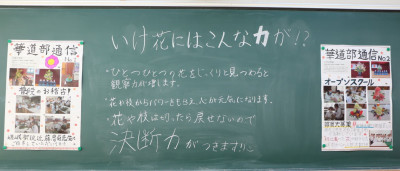 華道部通信
No.1
普段のお稽古!
いけ花にはこんな力が!?
・ひとつひとつの花をじっくりと見つめると
観察力が増します。
・花や枝からパワーをもらえ、人が元気になります。
・花や枝は切ったら戻せないので
決断力がつきます!!
華道部通信
No.2
オープンスクール